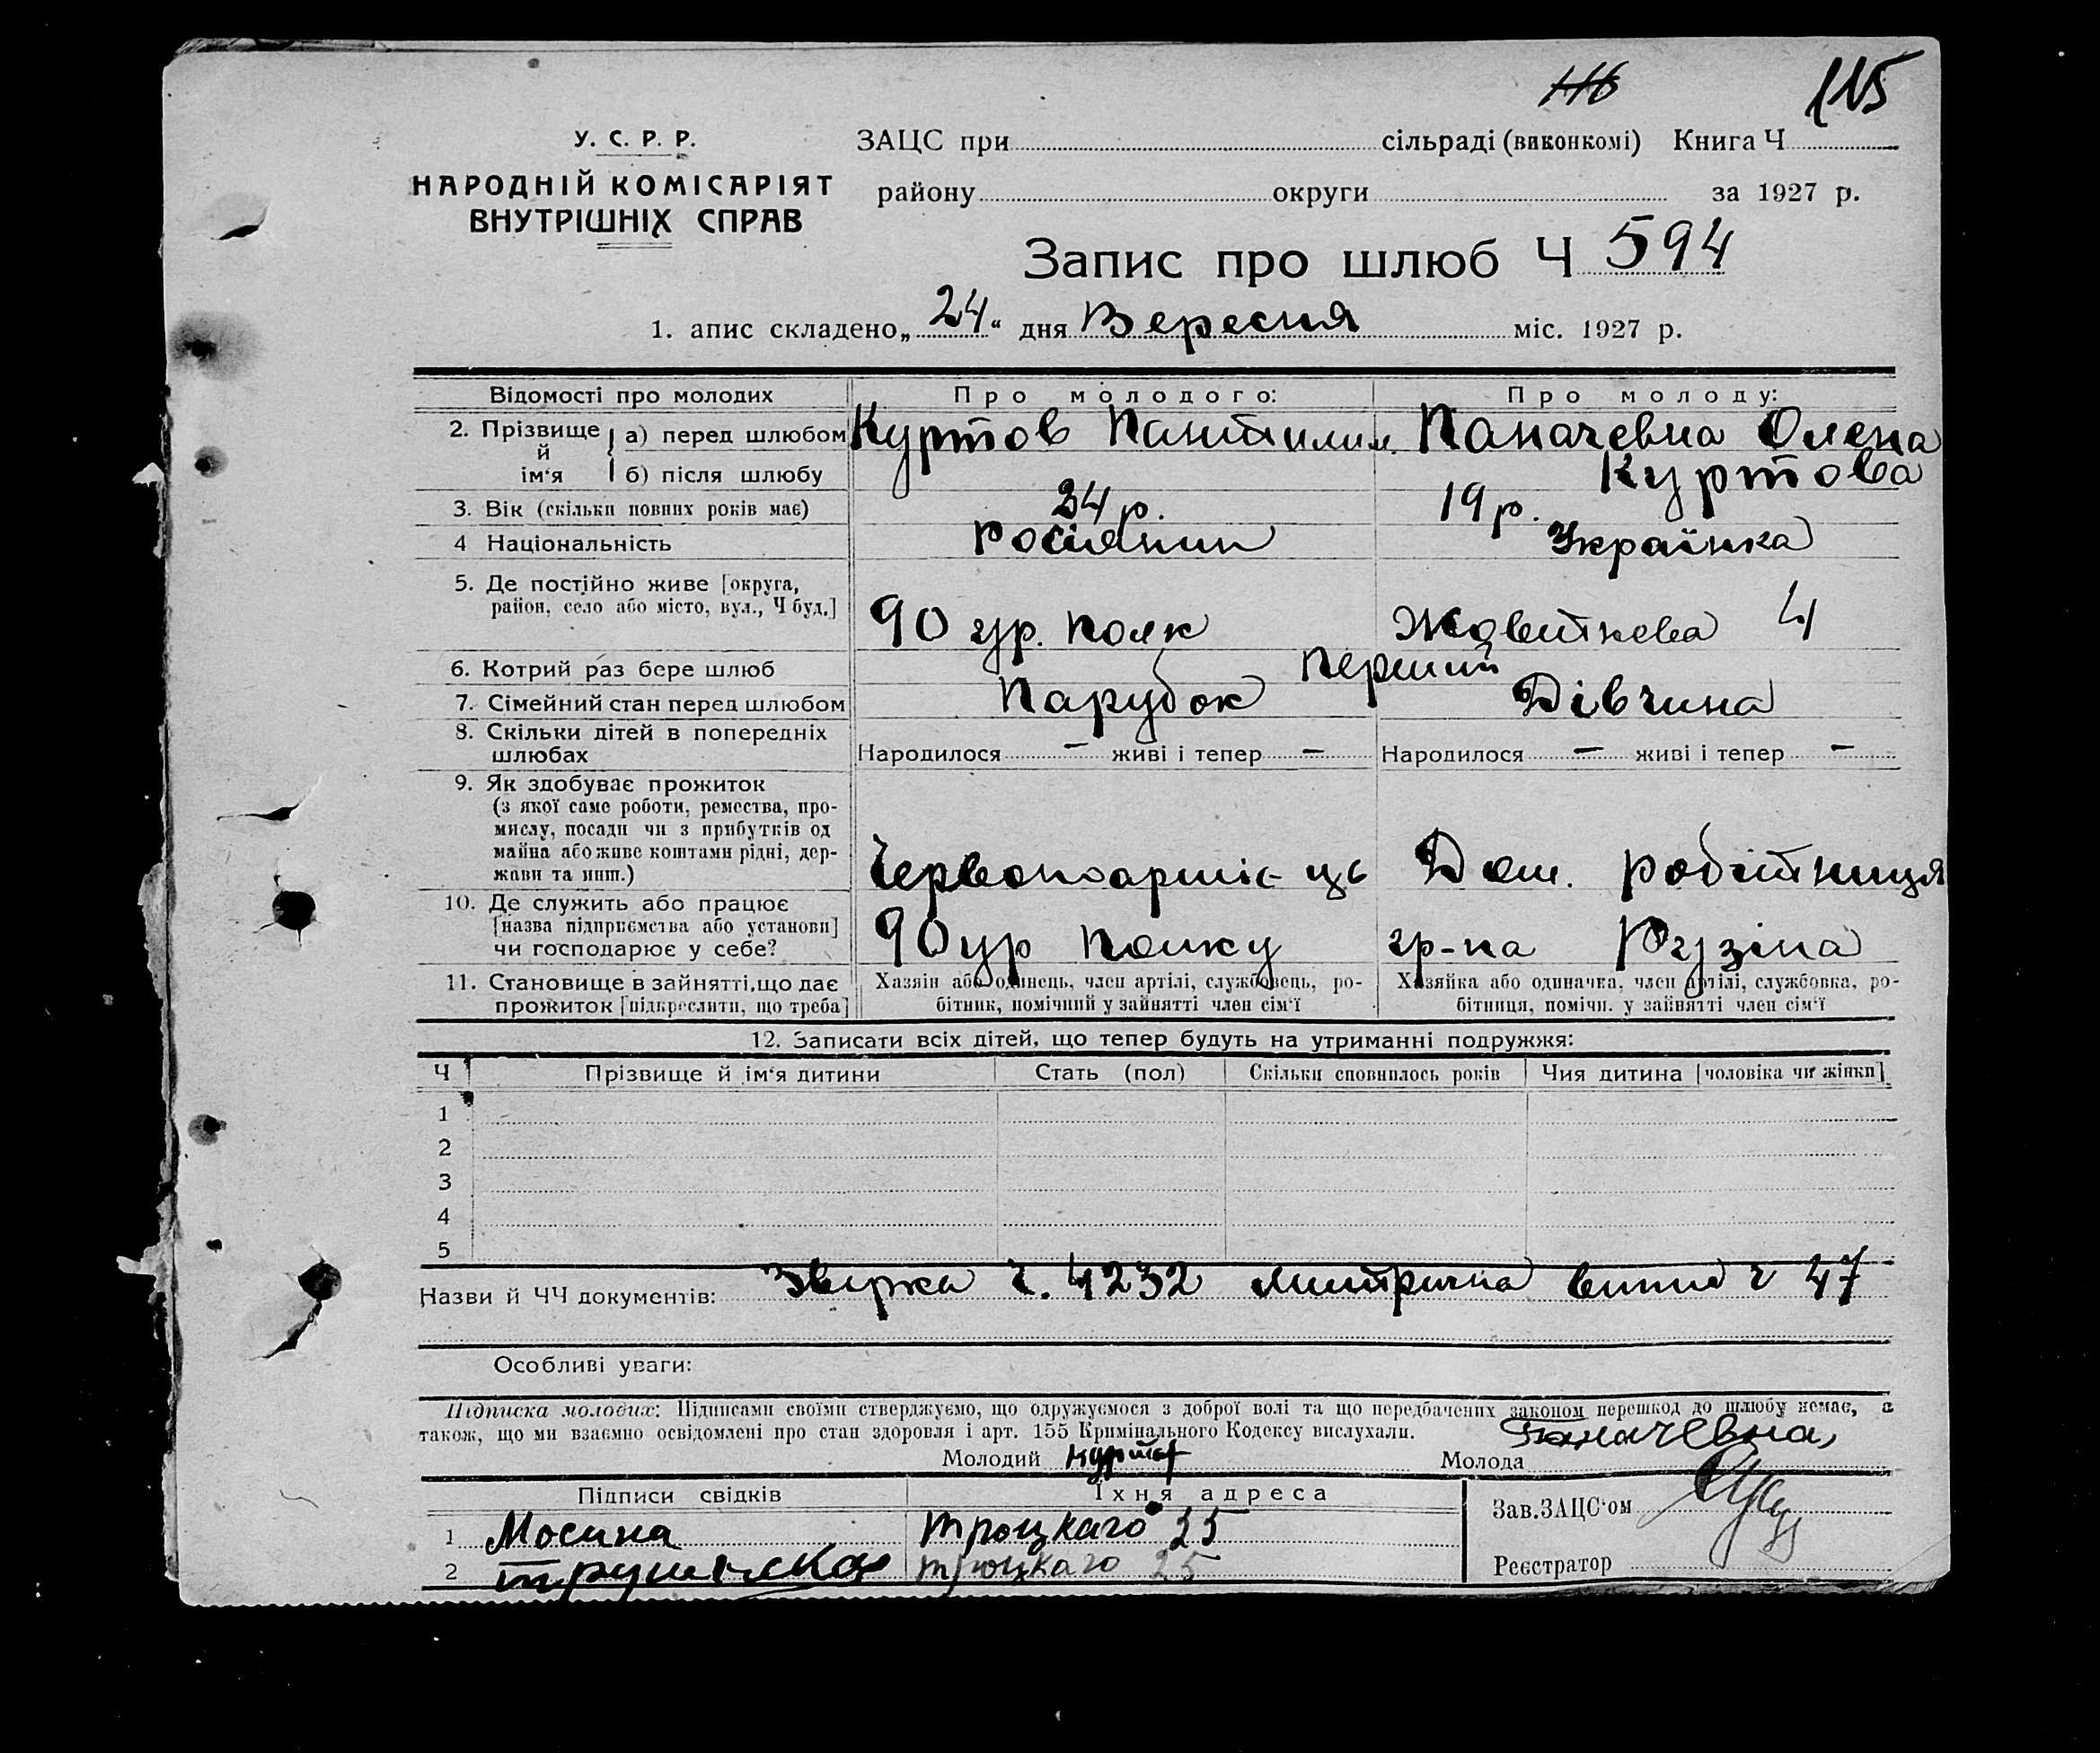 116 115
У. С. Р. Р.
НАРОДНІЙ КОМІСАРІЯТ
ВНУТРІШНІХ СПРАВ
ЗАЦС при сільраді (виконкомі) Книга Ч
району округи за 1927 р.
Запис про шлюб Ч 594
1. апис складено „24“ дня Вересня міс. 1927 р.
Відомості про молодих Про молодого: Про молоду:
2. Прізвище й ім'я а) перед шлюбом Куртов Пантилим. Паначевна Олена
б) після шлюбу Куртова
3. Вік (скільки повних років має) 24 р. 19 р.
4 Національність Росіянин Українка
5. Де постійно живе [округа,
район, село або місто, вул., Ч буд.] 90 ур. полк Жовтнева 4
6. Котрий раз бере шлюб перший
7. Сімейний стан перед шлюбом Парубок Дівчина
8. Скільки дітей в попередніх
шлюбах Народилося – живі і тепер – Народилося – живі і тепер –
9. Як здобуває прожиток
(з якої саме роботи, ремества, про-
мислу, посади чи з прибутків од
майна або живе коштами рідні, дер-
жави та инш.) Червоноарміє ць Дом. робітниця
10. Де служить або працює
[назва підприємства або установи]
чи господарює у себе? 90 ур полку гр-на Рузіна
11. Становище в зайнятті, що дає
прожиток [підкреслити, що треба]
Хазяїн або одинець, член артілі, службовець, ро-
бітник, помічний у зайнятті член сім'ї
Хазяйка або одиначка, член артілі, службовка, ро-
бітниця, помічн. у зайнятті член сім'ї
12. Записати всіх дітей, що тепер будуть на утриманні подружжя:
Ч Прізвище й ім'я дитини Стать (пол) Скільки сповнилось років Чия дитина [чоловіка чи жінки]
1
2
3
4
5
Назви й ЧЧ документів: ч. 4232 Митрична ч 47
Особливі уваги:
Підписка молодих: Підписами своїми стверджуємо, що одружуємося з доброї волі та що передбачених законом перешкод до шлюбу немає, а
також, що ми взаємно освідомлені про стан здоровля і арт. 155 Кримінального Кодексу вислухали.
Молодий Куртов Молода Паначевна
Підписи свідків Їхня адреса
1 Мосина Троцкаго 25
2 Троцкаго 25
Зав. ЗАЦС'ом
Реєстратор